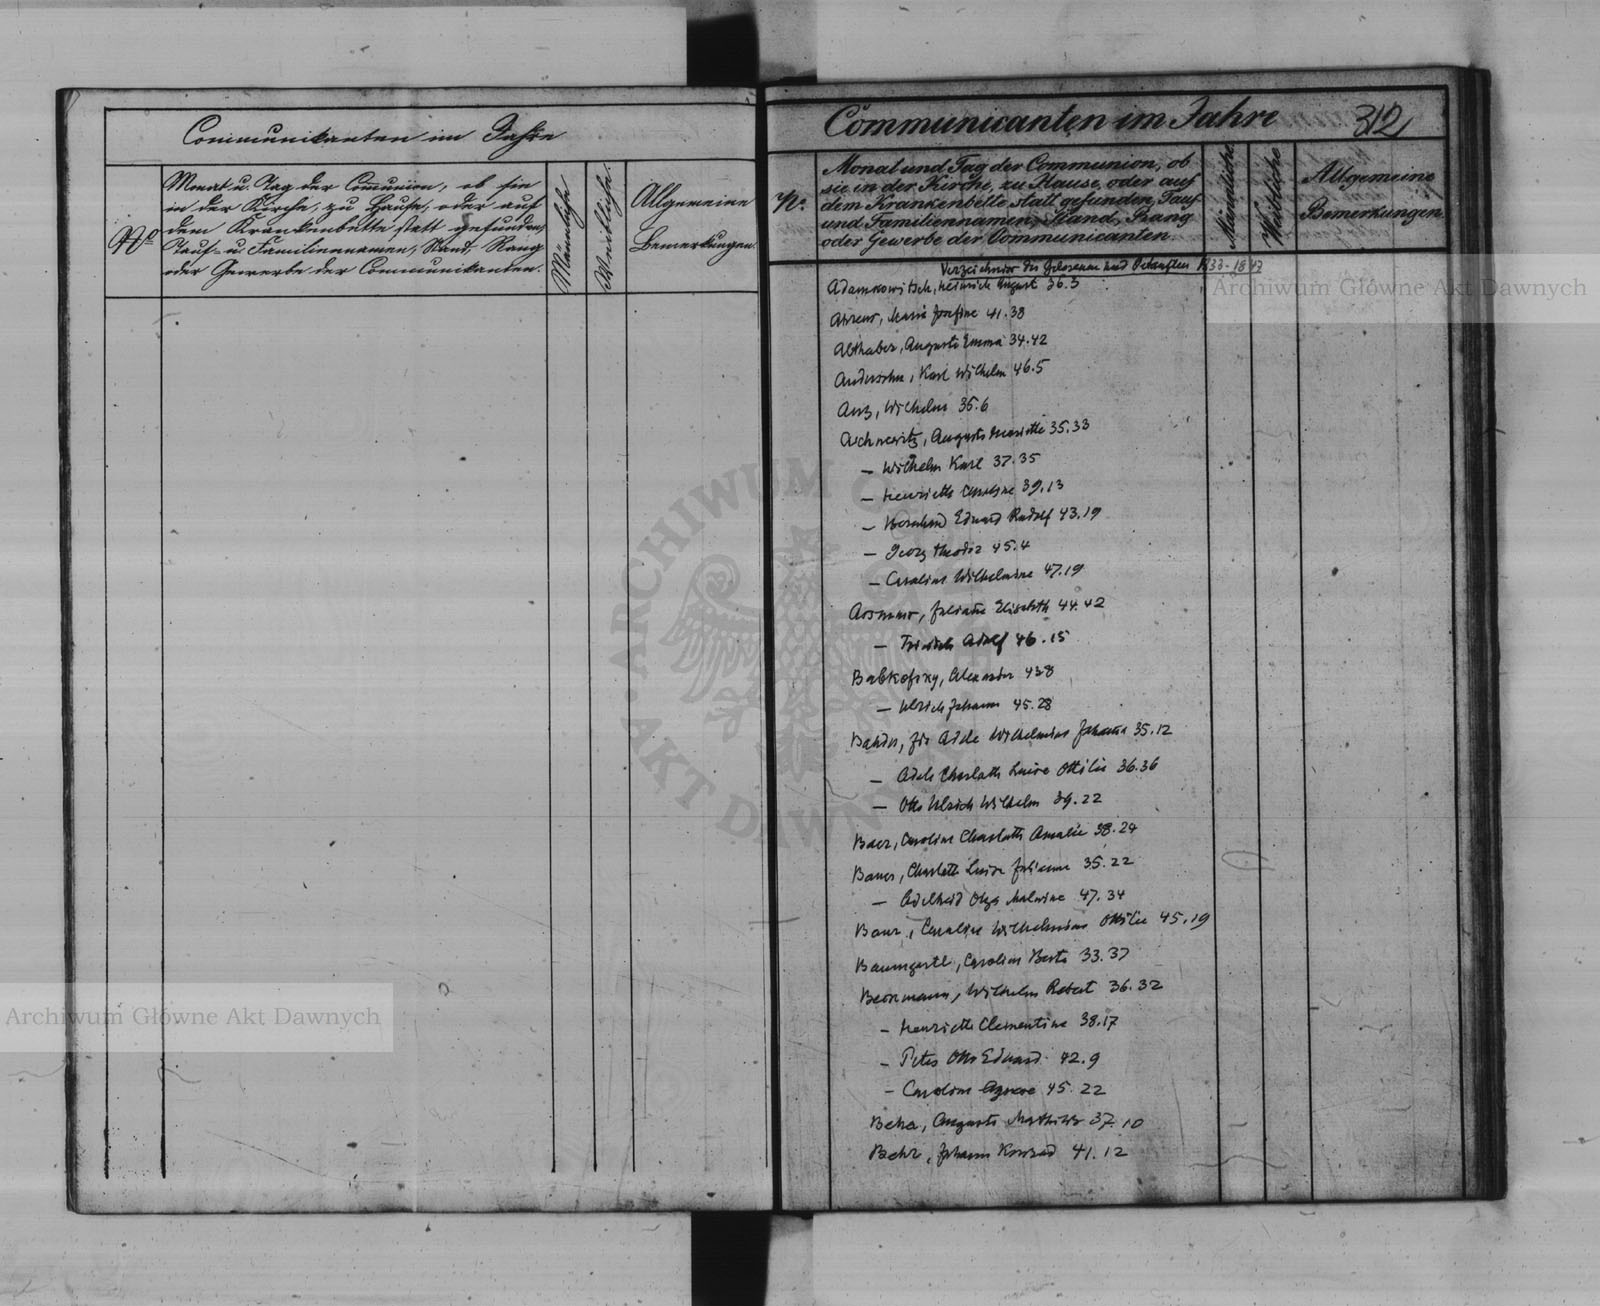 Communikanten im Jahre
No
Monat u. Tag der Comunion, ob sie
in der Kirche, zu Hause, oder auf
dem Krankenbette statt gefunden,
Tauf- u. Familiennamen, Stand, Rang
oder Gewerbe der Communikanten.
Männliche
Weibliche.
Allgemeine
Bemerkungen.
Communicanten im Jahre
312
No.
Monat und Tag der Communion, ob
sie in der Kirche, zu Hause, oder auf
dem Krankenbette statt gefunden, Tauf
und Familiennamen, Stand, Rang
oder Gewerbe der Communicanten.
Männliche
Weibliche
Allgemeine
Bemerkungen.
Verzeichnis der Geborenen und Getauften 1833-1847
Adamkowitsch, Heinrich August 36.3
Ahrens, Marie Josefine 41.38
Althaber, Auguste Emma 34.42
Andersohn, Karl Wilhelm 46.5
Anz, Wilhelm 35.6
Auguste Henriette 35.33
— Wilhelm Karl 37.35
— Henriette Caroline 39.13
— Eduard Rudolf 43.19
— Georg Theodor 45.4
— Caroline Wilhelmine 47.19
Assmus, Juliane Elisabeth 44.42
— Friedrich Adolf 46.15
Babkofsky, Alexander 43.8
— Ulrich Johann 45.28
Bahder, Adele Wilhelmine Johanna 35.12
— Adele Charlotte Luise Ottilie 36.36
— Otto Ulrich Wilhelm 39.22
Baer, Caroline Charlotte Amalie 38.24
Bauer, Charlotte Luise Julianne 35.22
— Adelheid Olga Malwine 47.34
Baur, Caroline Wilhelmine Ottilie 45.19
Baumgertl, Caroline Berta 33.37
Beckmann, Wilhelm Robert 36.32
— Henriette Clementine 38.17
— Peter Otto Eduard 42.9
— Caroline Agnese 45.22
Beha, Auguste Mathilde 37.10
Behr, Johann Konrad 41.12
Archiwum Główne Akt Dawnych
Archiwum Główne Akt Dawnych